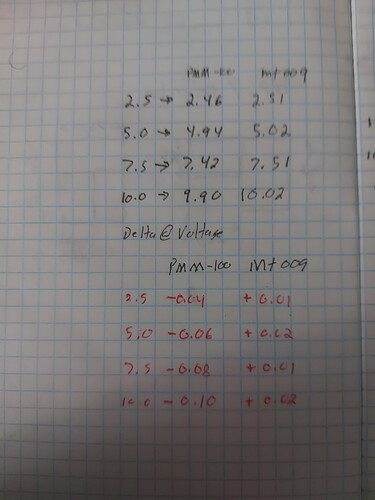 PMM-100 Mt009
2.5 → 2.46 2.51
5.0 → 4.94 5.02
7.5 → 7.42 7.51
10.0 → 9.90 10.02
Delta @ Voltage
PMM-100 Mt009
2.5 -0.04 + 0.01
5.0 -0.06 + 0.02
7.5 -0.08 + 0.01
10.0 -0.10 + 0.02